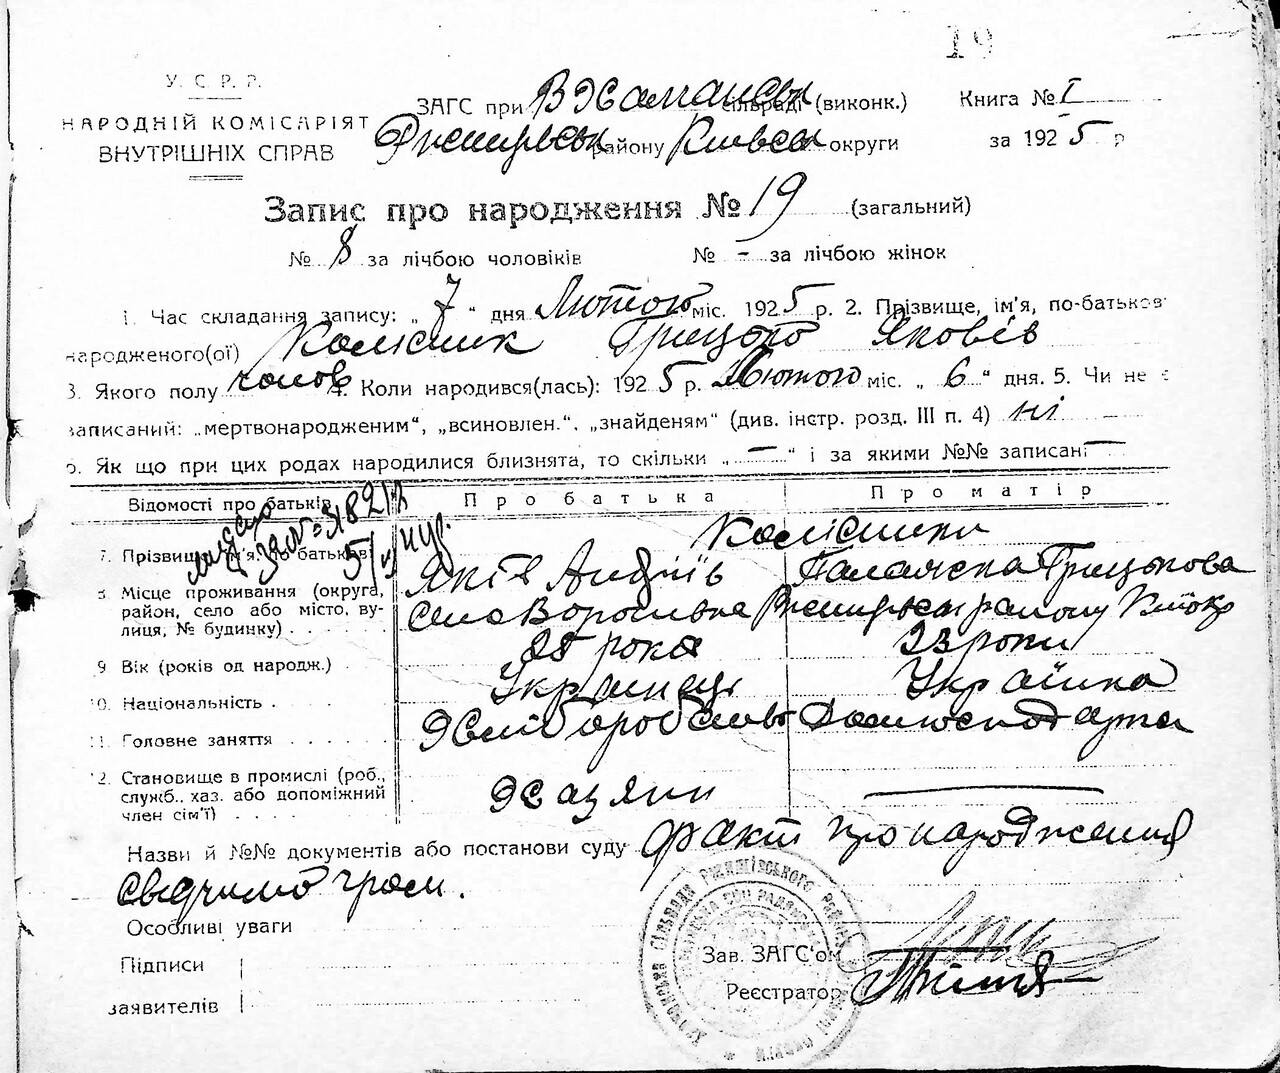 19
У. С. Р. Р.
НАРОДНІЙ КОМІСАРІЯТ
ВНУТРІШНІХ СПРАВ
ЗАГС при сільраді (виконк.)
району Київськ округи
Книга № I
за 1925 р
Запис про народження № 19 (загальний)
№ 8 за лічбою чоловіків № - за лічбою жінок
1. Час складання запису: „ 7 " дня Лютого міс. 1925 р. 2. Прізвище, ім'я, по-батьков
народженого(ої) Колісник Грицько Яковів
3. Якого полу чолов 4. Коли народився(лась): 1925 р. Лютого міс. „ 6 " дня. 5. Чи не є
записаний: „мертвонародженим", „всиновлен.", „знайденям" (див. інстр. розд. III п. 4) ні
6. Як що при цих родах народилися близнята, то скільки „ — " і за якими №№ записані —
Відомості про батьків Про батька Про матір
Колісники
7. Прізвище, ім'я, по батькові Яків Андріїв Палажка Грицькова
8. Місце проживання (округа, район, село або місто, вулиця, № будинку) Село району
9 Вік (років од народж.) 23 роки
10. Національність Українець Українка
11. Головне заняття Хліборобство
12. Становище в промислі (роб.,
служб., хаз. або допоміжний
член сім'ї)
Хазяин —
Назви й №№ документів або постанови суду факт про народження
свідчимо
Особливі уваги
Підписи
заявителів
Зав. ЗАГС'ом
Реєстратор